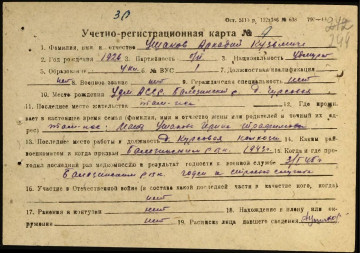 Учетно-регистрационная карта №
1. Фамилия, имя и отчество Ушаков Аркадий Кузьмич
2. Год рождения 1926 3. Партийность б/п 4. Национальность удмурт
5. Образование 4 кл. 6. № ВУС 1 7. Должностная квалификация
нет 8. Воинское звание нет 9. Гражданская специальность нет
10. Место рождения Удм АССР, Балезинский р.
11. Последнее место жительства там-же 12. Где прожи-
вает в настоящее время семья (фамилия, имя и отчество жены или родителей и точный их
адрес) там-же. Мать Ушакова
13. Последнее место работы и должность
14. Каким рай-
военкоматом и когда призван Балезинским р. 1943 г. 15. Когда и где про-
ходил последний раз медкомиссию и результат годности к военной службе
Балезинским годен к строевой службе
16. Участие в Отечественной войне (в составе какой последней части в качестве кого, когда)
нет
17. Ранения и контузии нет 18. Нахождение в плену или ок-
ружении нет 19. Расписка лица давшего сведения